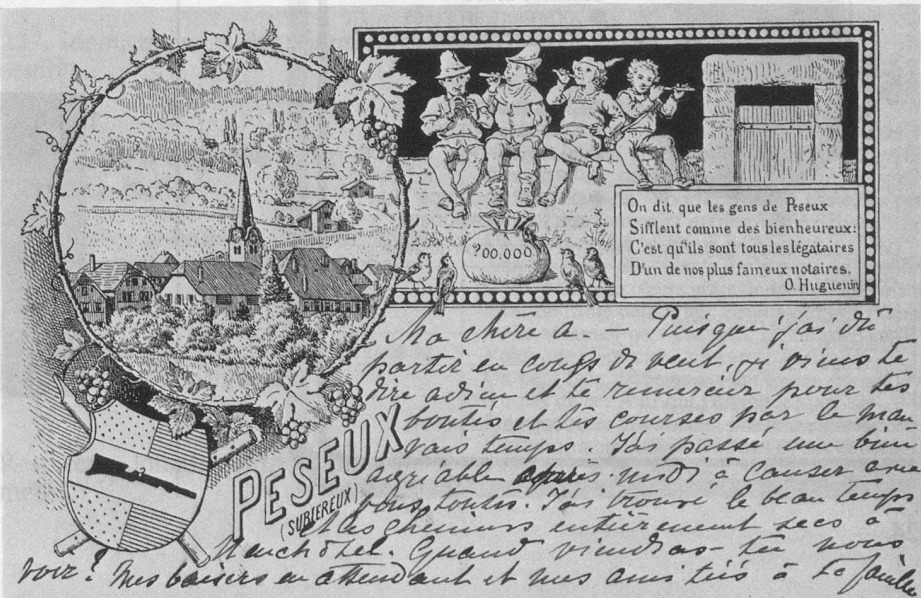 200,000
On dit que les gens de Peseux
Sifflent comme des bienheureux:
C'est qu'ils sont tous les légataires
D'un de nos plus fameux notaires.
O. Huguenin
PESEUX
(SUBIEREUX)
Ma chère a. — Puisque j'ai dû
partir en coups de vent, je viens te
dire adieu et te remercier pour tes
bontés et tes courses par le mau
vais temps. J'ai passé une bien
agréable après-midi à causer avec
vous toutes. J'ai trouvé le beau temps
et les chemins entièrement secs à
Neuchâtel. Quand viendras-tu nous
voir? Mes baisers en attendant et mes amitiés à ta famille